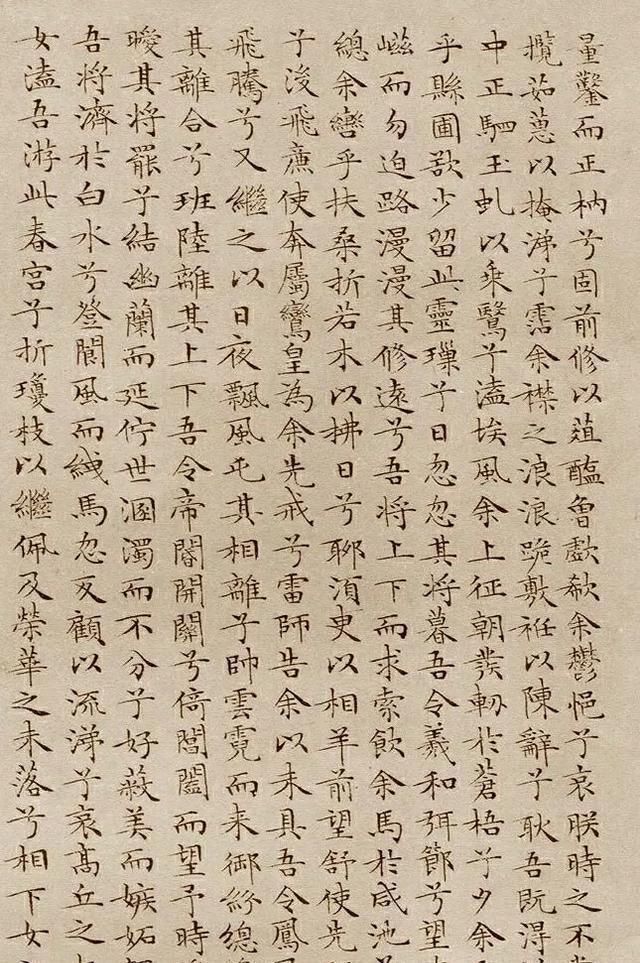 量鑿而正枘兮固前修以菹醢曾歔欷余鬱悒兮哀朕時之不
攬茹蕙以掩涕兮霑余襟之浪浪跪敷衽以陳辭兮耿吾既得
中正駟玉虬以乘鷖兮溘埃風余上征朝發軔於蒼梧兮夕余
乎縣圃欲少留此靈瑣兮日忽忽其將暮吾令羲和弭節兮望
嵫而勿迫路漫漫其修遠兮吾將上下而求索飲余馬於咸池
總余轡乎扶桑折若木以拂日兮聊須臾以相羊前望舒使先
兮後飛廉使奔屬鸞皇為余先戒兮雷師告余以未具吾令鳳
飛騰兮又繼之以日夜飄風屯其相離兮帥雲霓而来御紛總
其離合兮班陸離其上下吾令帝閽開關兮倚閶闔而望予時
曖其將罷兮結幽蘭而延佇世溷濁而不分兮好蔽美而嫉妬
吾將濟於白水兮登閬風而緤馬忽反顧以流涕兮哀高丘之
女溘吾游此春宮兮折瓊枝以繼佩及榮華之未落兮相下女